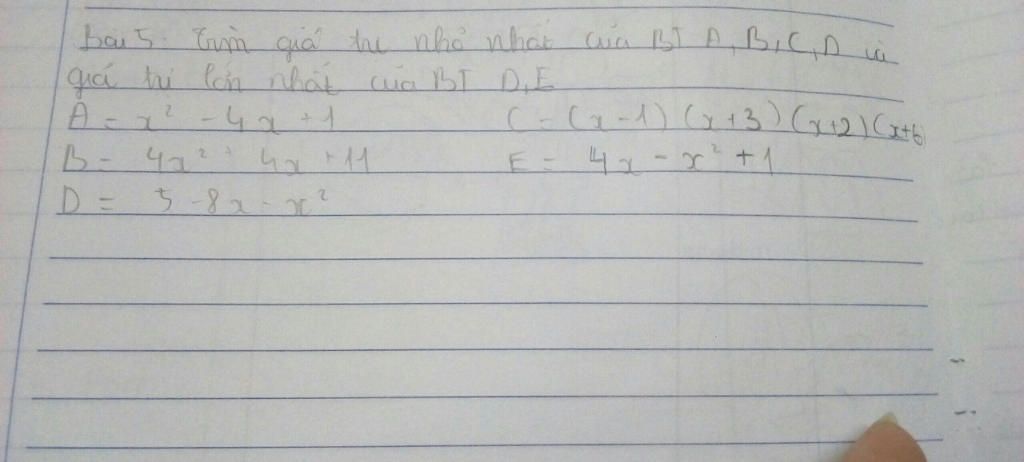 Bài 5: Tìm giá trị nhỏ nhất của BT A, B, C, D và
giá trị lớn nhất của BT D, E
A = x² - 4x + 1 C = (x-1) (x+3) (x+2) (x+6
B = 4x² + 4x + 11 E = 4x - x² + 1
D = 5 - 8x - x²